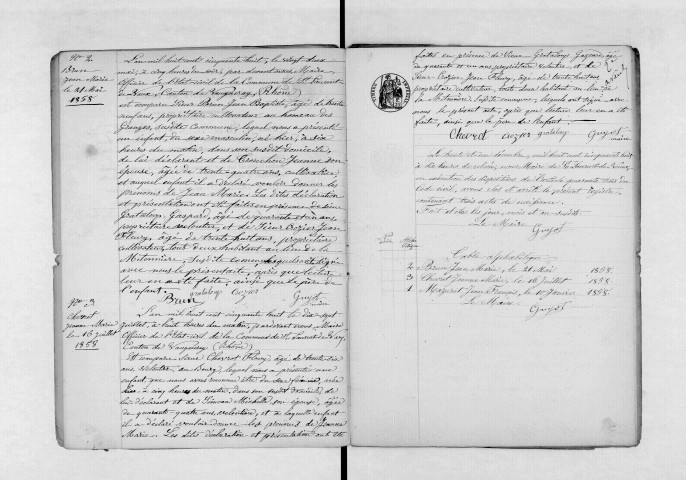 N° 2
Brun
Jean Marie
le 21 Mai
1858
L'an mil huit cent cinquante huit, le vingt deux
mai, à cinq heures du soir, par devant nous Maire
Officier de l'Etat-civil de la Commune de St Laurent
de Vaux, Canton de Vaugneray, (Rhône)
est comparu Sieur Brun Jean Baptiste, âgé de trente
neuf ans, propriétaire cultivateur au hameau des
Granges, susdite Commune, lequel nous a présenté
un enfant, du sexe masculin, né hier, à dix
heures du matin, dans son susdit domicile,
de lui déclarant et de Jeanne son
épouse, âgée de trente quatre ans, cultivatrice
et auquel enfant il a déclaré vouloir donner les
prénoms de Jean Marie. Les dites déclaration
et présentation ont été faites en présence de Sieur
Grataloup Gaspard, âgé de quarante et un ans,
propriétaire rentier, et de Sieur Crozier Jean
Fleury, âgé de trente huit ans, propriétaire
cultivateur, tout deux habitant au lieu de la
Mitonnière, susdite commune, lesquels ont signé
avec nous le présent acte, après que lecture
leur en a été faite, ainsi que le père de
l'enfant.
Brun grataloup Crozier Guyot
maire
N° 3
Chevrot
Jeanne Marie
le 16 juillet
1858
L'an mil huit cent cinquante huit le dix sept
juillet, à huit heures du matin, par devant nous Maire
Officier de l'Etat-civil de la Commune de St Laurent de Vaux,
Canton de Vaugneray (Rhône)
Est comparu Sieur Chevrot Fleury, âgé de trente six
ans, au bourg, lequel nous a présenté un
enfant que nous avons reconnu être du sexe féminin, née
hier à cinq heures du matin, dans son susdit domicile de
lui déclarant et de Michelle son épouse, âgée
de quarante quatre ans, et à laquelle enfant
il a déclaré vouloir donner les prénoms de Jeanne
Marie. Les dites déclaration et présentation ont été
faites en présence de Sieur Grataloup Gaspard, âgé
de quarante et un ans, propriétaire rentier et de
Sieur Crozier Jean Fleury, âgé de trente huit ans,
propriétaire cultivateur, tous deux habitant au lieu de
la Mitonnière, susdite commune, lesquels ont signé avec
nous le présent acte, après que lecture leur en a été
faite, ainsi que le père de l'enfant.
Chevrot crozier grataloup Guyot
maire
Le trente et un décembre, mil huit cent cinquante huit, à
heures du soir, nous Maire de St Laurent de Vaux,
en exécution des dispositions de l'article quarante trois du
Code civil, avons clos et arrêté le présent registre
contenant trois actes de naissance.
Fait et clos les jour, mois et an susdits.
Le Maire
Guyot
Table alphabétique
2 Brun Jean Marie, le 21 Mai 1858
3 Chevrot Jeanne Marie, le 16 juillet 1858
1 Jean François, le 11 Janvier 1858
Le Maire
Guyot